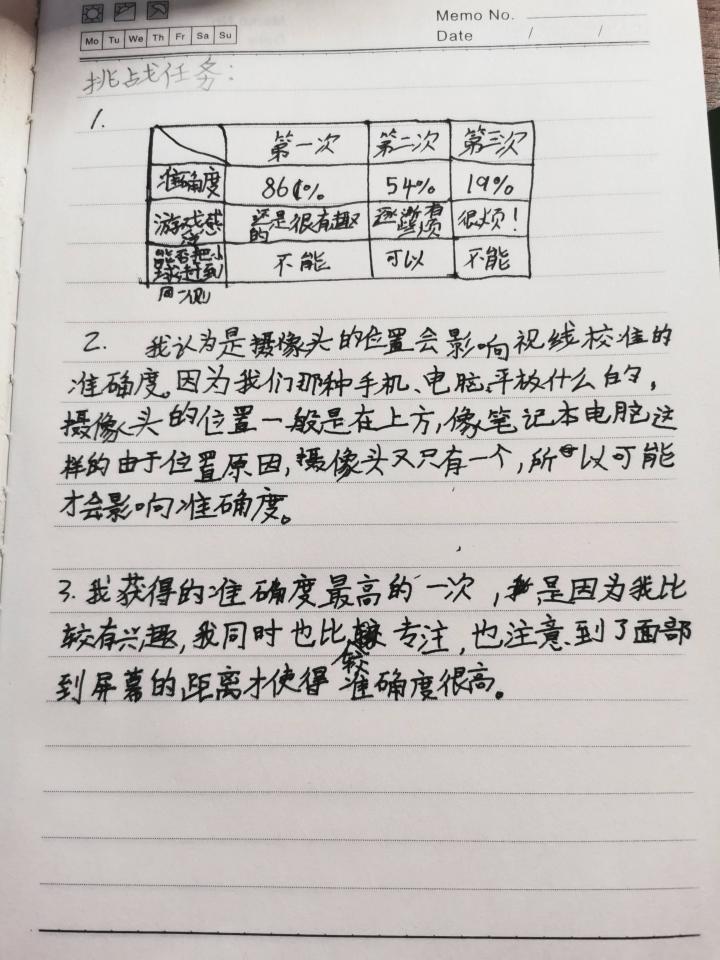 Memo No.
Mo Tu We Th Fr Sa Su
Date / /
挑战任务:
1.
第一次 第二次 第三次
准确度 86% 54% 19%
游戏感受 还是很有趣的 逐渐有些烦 很烦!
能否把小球打到同一侧 不能 可以 不能
2. 我认为是摄像头的位置会影响视线校准的
准确度。因为我们那种手机、电脑、平放什么的,
摄像头的位置一般是在上方,像笔记本电脑这
样的由于位置原因,摄像头又只有一个,所以可能
才会影响准确度。
3. 我获得的准确度最高的一次,是因为我比
较有兴趣,我同时也比较专注,也注意到了面部
到屏幕的距离才使得准确度很高。